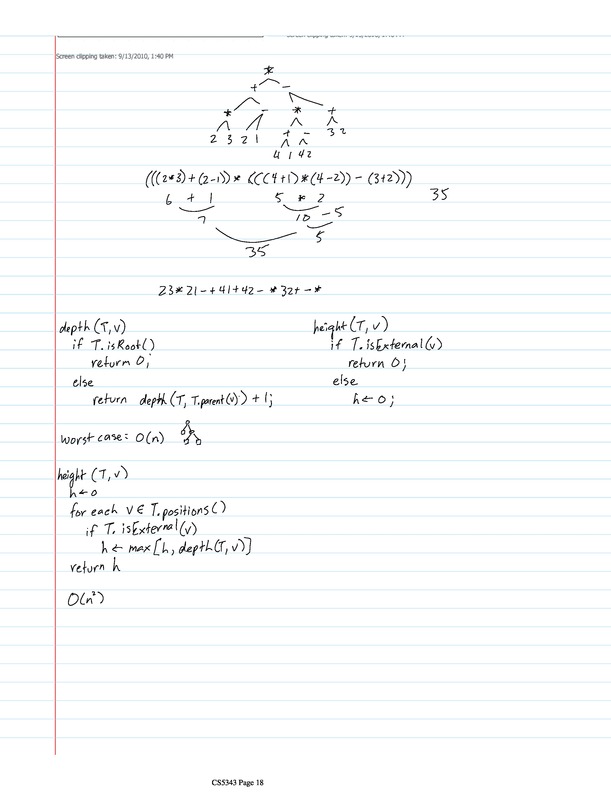 Screen clipping taken: 9/13/2010, 1:40 PM
*
+ -
* - * +
2 3 2 1 + - 3 2
4 1 4 2
(((2*3)+(2-1))* ((((4+1)*(4-2)) - (3+2)))
6 + 1 5 * 2 35
7 10 - 5
5
35
23*21-+41+42-*32+-*
depth (T,v)
if T.isRoot()
return 0;
else
return depth(T, T.parent(v)) + 1;
worst case: O(n)
height (T,v)
h← 0
for each v ∈ T.positions()
if T.isExternal(v)
h ← max[h, depth(T,v)]
return h
O(n²)
height (T,v)
if T.isExternal(v)
return 0;
else
h← 0;
CS5343 Page 18